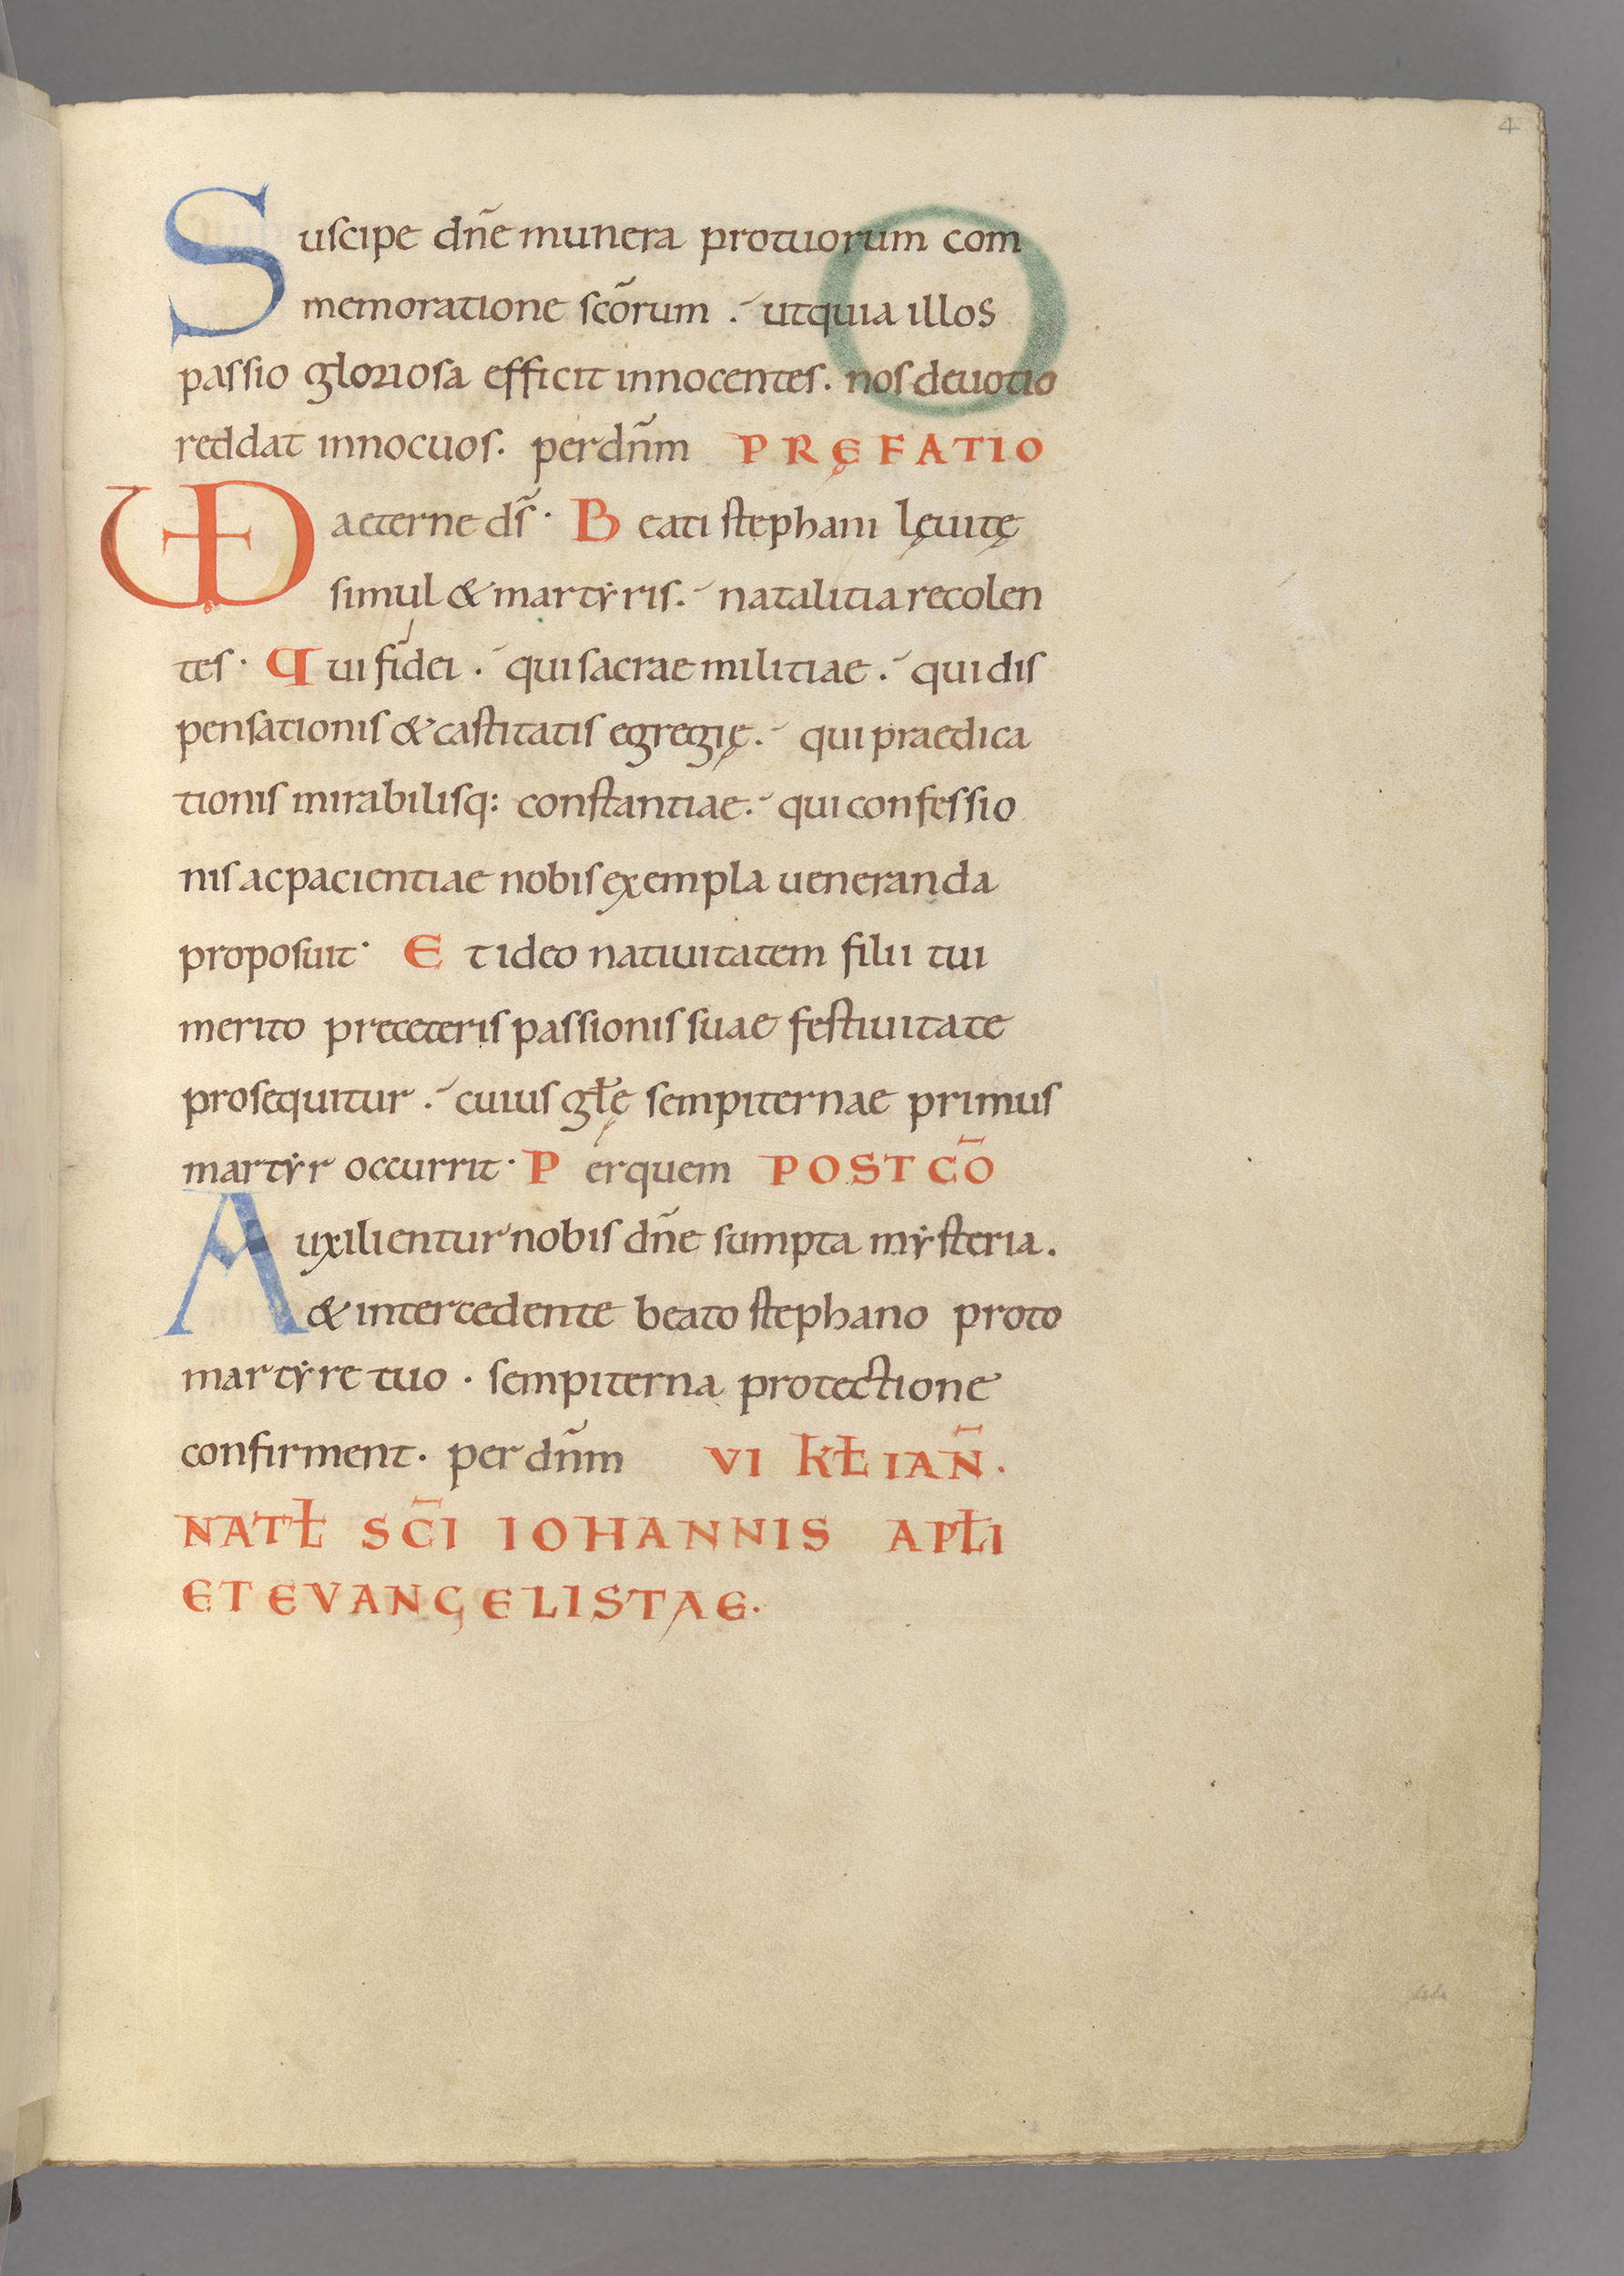 4
Suscipe dn̄e munera pro tuorum com
memoratione scōrum . ut quia illos
passio gloriosa efficit innocentes . nos deuotio
reddat innocuos . per dn̄m PRĘFATIO
VD aeterne ds̄ · Beati stephani lęuitę
simul & martẏris . natalitia recolen
tes · Qui fidei . qui sacrae militiae . qui dis
pensationis & castitatis egregię . qui praedica
tionis mirabilisq: constantiae . qui confessio
nis ac pacientiae nobis exempla ueneranda
proposuit · Et ideo natiuitatem filii tui
merito pre ceteris passionis suae festiuitate
prosequitur . cuius głę sempiternae primus
martẏr occurrit · Per quem POST CŌ
Auxilientur nobis dn̄e sumpta mẏsteria .
& intercedente beato stephano proto
martẏre tuo · sempiterna protectione
confirment . per dn̄m VI KŁ IAN̄ .
NATŁ SC̄I IOHANNIS APŁI
ET EVANGELISTAE .